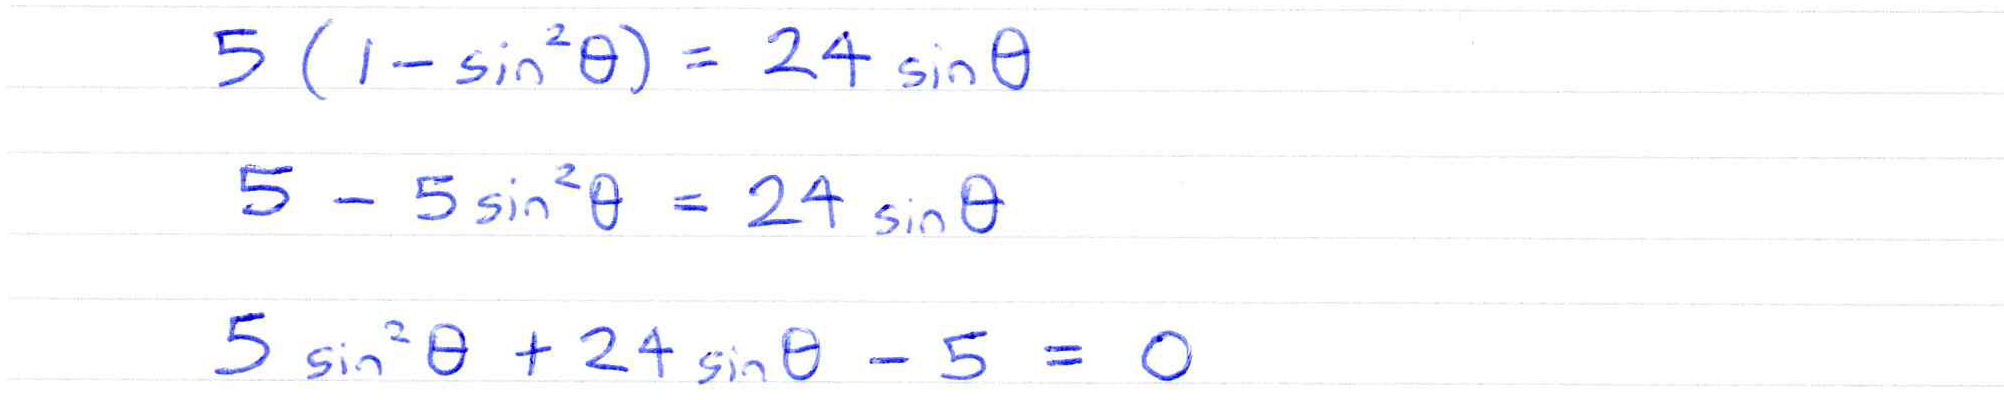 5 (1 - sin²θ) = 24 sin θ
5 - 5 sin²θ = 24 sin θ
5 sin²θ + 24 sin θ - 5 = 0